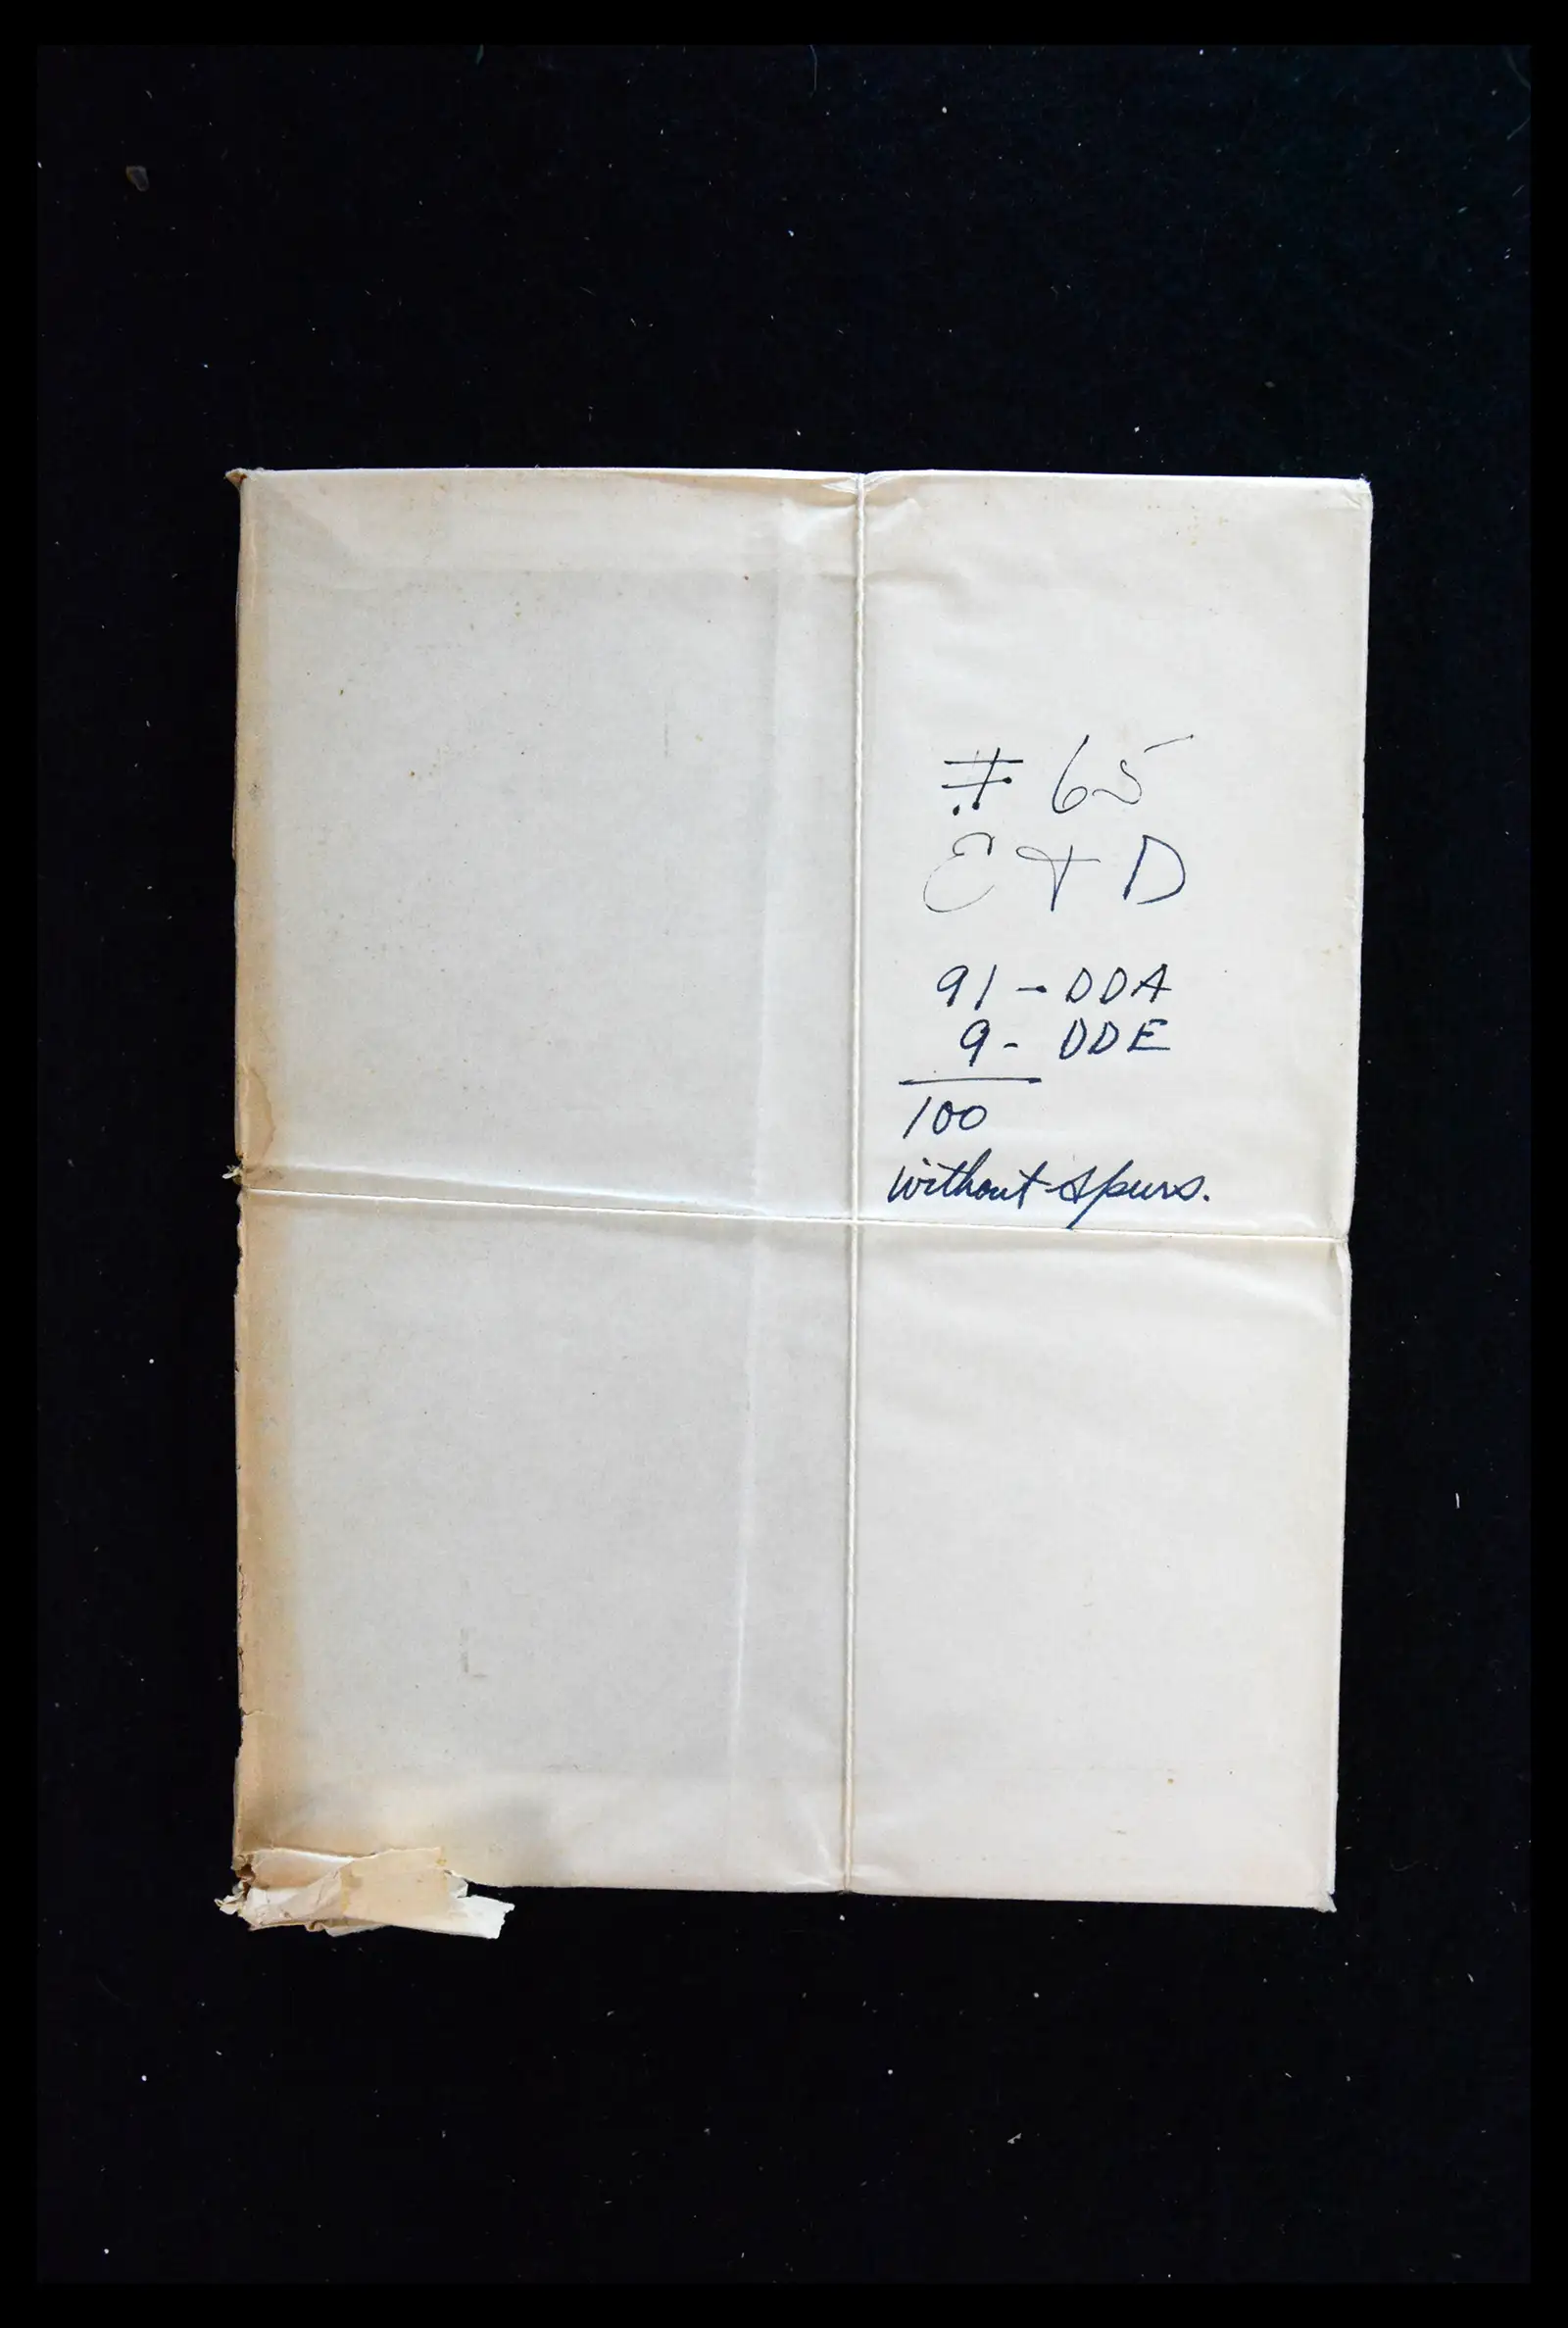 # 65
E + D
91 - DDA
9 - DDE
100
without spurs.